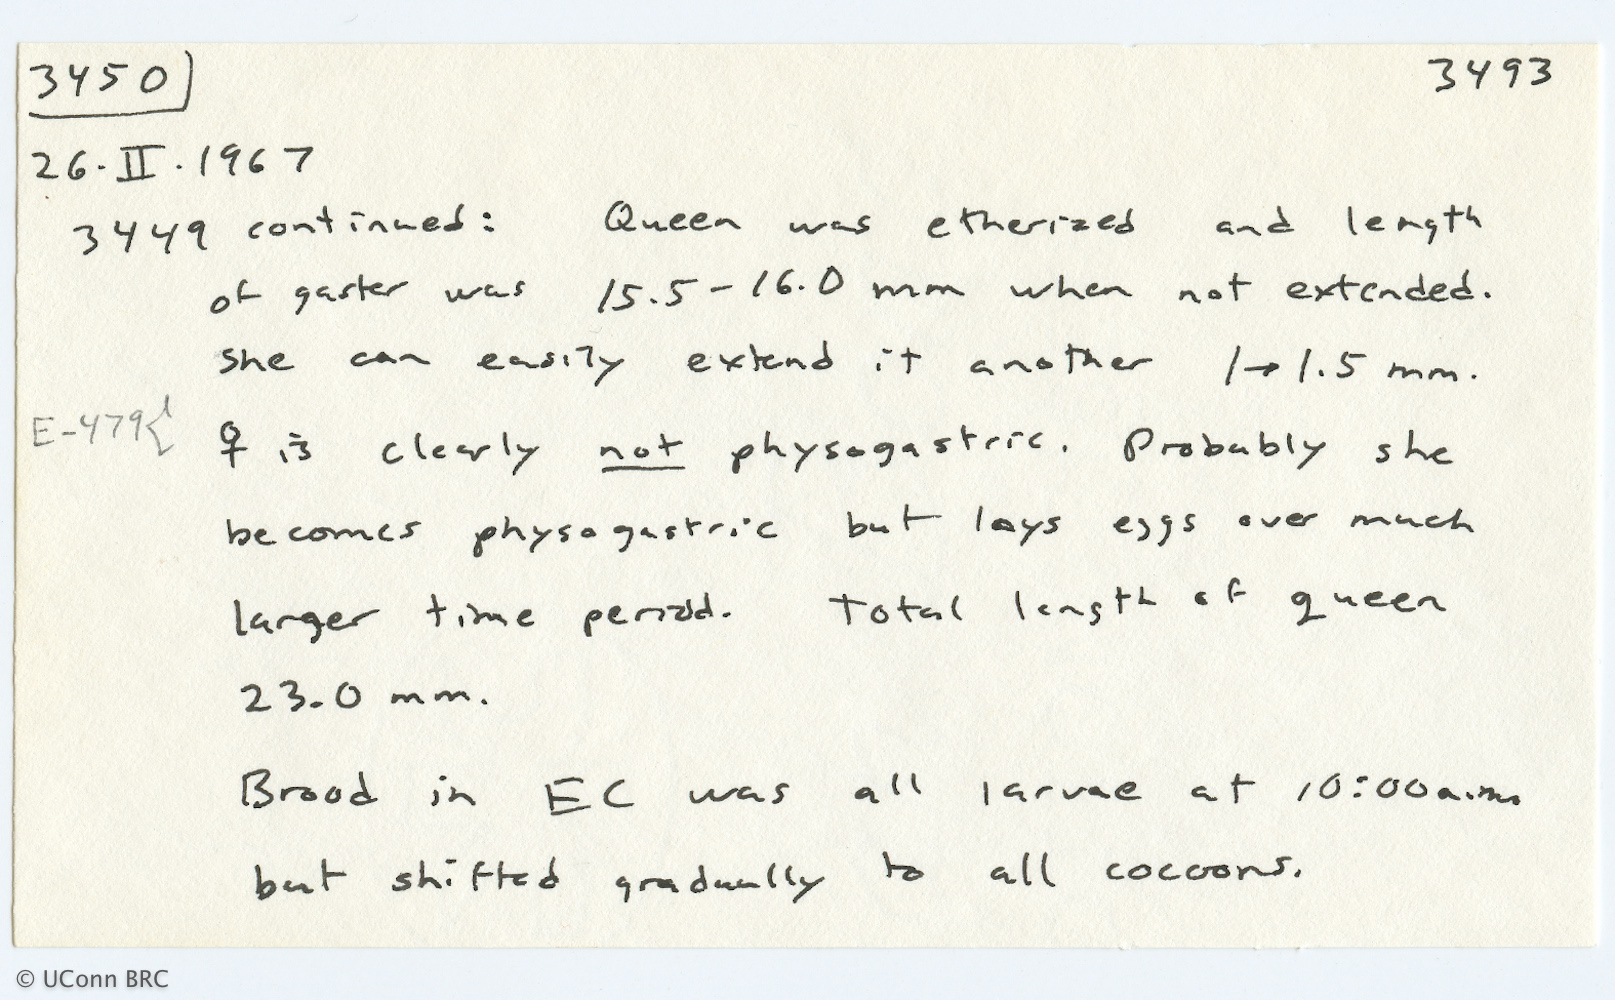 3450 3493
26.II.1967
3449 continued: Queen was etherized and length
of gaster was 15.5-16.0 mm when not extended.
She can easily extend it another 1→1.5 mm.
E-479{ ♀ is clearly not physogastric. Probably she
becomes physogastric but lays eggs over much
larger time period. Total length of queen
23.0 mm.
Brood in EC was all larvae at 10:00a.m.
but shifted gradually to all cocoons.
© UConn BRC